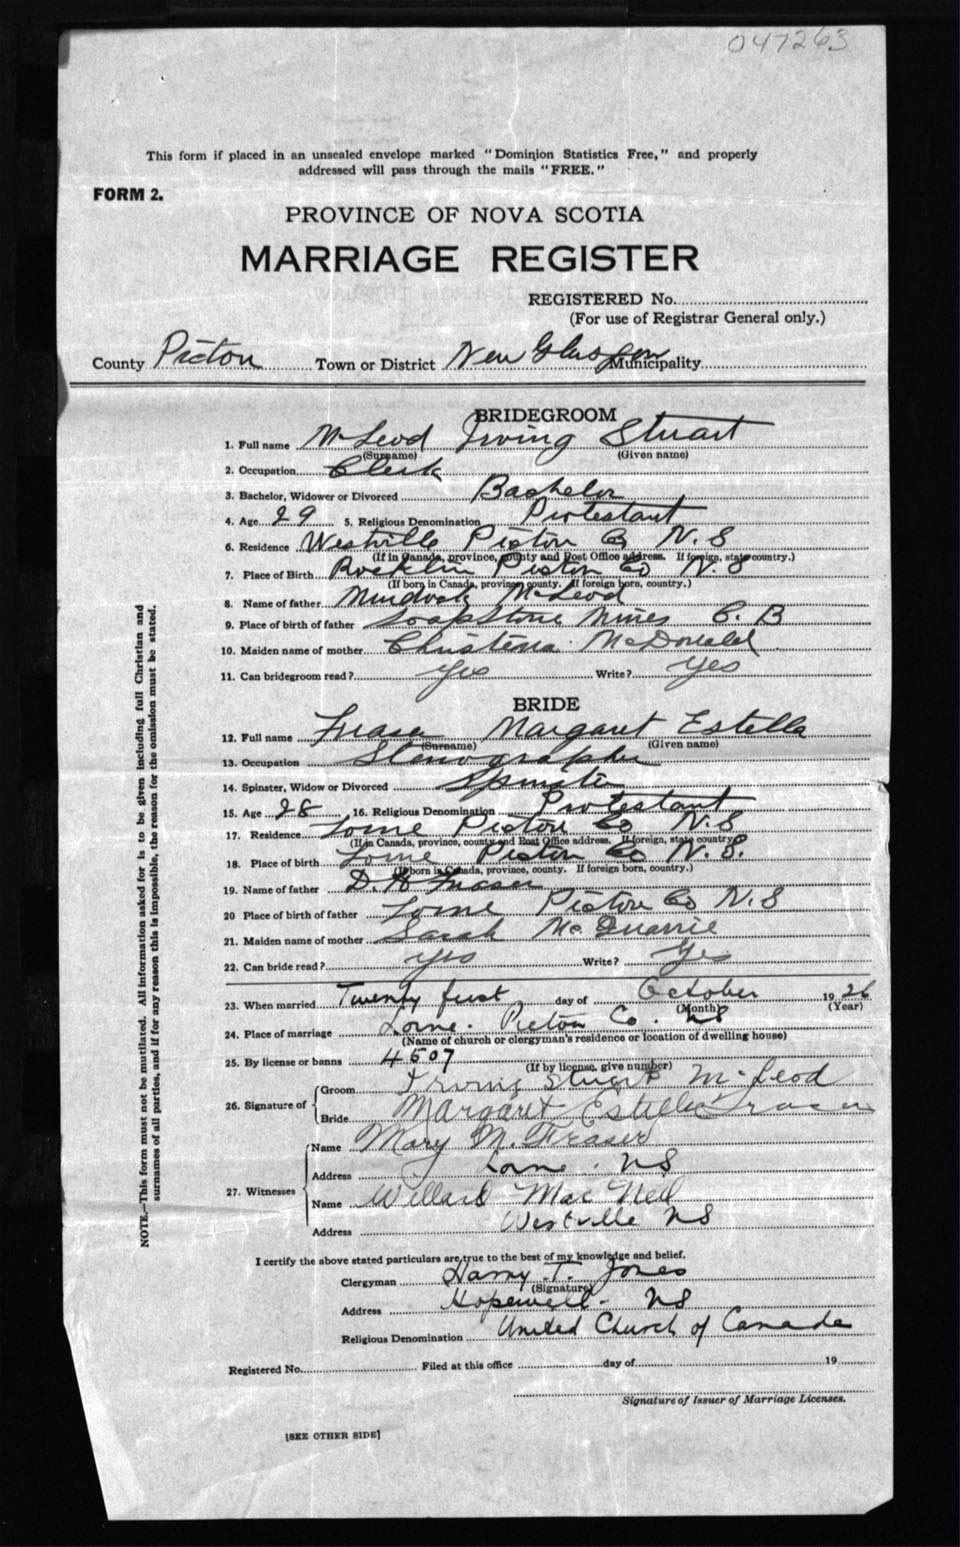 047263
This form if placed in an unsealed envelope marked "Dominion Statistics Free," and properly
addressed will pass through the mails "FREE."
FORM 2.
PROVINCE OF NOVA SCOTIA
MARRIAGE REGISTER
REGISTERED No.
(For use of Registrar General only.)
County Pictou Town or District New Glasgow Municipality
BRIDEGROOM
1. Full name McLeod Irving Stuart
(Surname) (Given name)
2. Occupation Clerk
3. Bachelor, Widower or Divorced Bachelor
4. Age 29 5. Religious Denomination Protestant
6. Residence Westville Pictou Co N.S
(If in Canada, province, county and Post Office address. If foreign, state country.)
7. Place of Birth Rocklin Pictou Co N.S
(If born in Canada, province, county. If foreign born, country.)
8. Name of father Murdock McLeod
9. Place of birth of father Soapstone Mines C.B
10. Maiden name of mother Christena McDonald
11. Can bridegroom read? yes Write? yes
BRIDE
12. Full name Fraser Margaret Estella
(Surname) (Given name)
13. Occupation Stenographer
14. Spinster, Widow or Divorced Spinster
15. Age 28 16. Religious Denomination Protestant
17. Residence Lorne Pictou Co N.S
(If in Canada, province, county and Post Office address. If foreign, state country.)
18. Place of birth Lorne Pictou Co N.S.
(If born in Canada, province, county. If foreign born, country.)
19. Name of father D. Fraser
20 Place of birth of father Lorne Pictou Co N.S
21. Maiden name of mother Sarah McQuarrie
22. Can bride read? yes Write? yes
23. When married Twenty first day of October 1926
(Month) (Year)
24. Place of marriage Lorne. Pictou Co. NS
(Name of church or clergyman's residence or location of dwelling house)
25. By license or banns 4507
(If by license, give number)
26. Signature of Groom Irving Stuart McLeod
Bride Margaret Estella Fraser
27. Witnesses Name Mary M. Fraser
Address Lorne. NS
Name Willard MacNeil
Address Westville NS
I certify the above stated particulars are true to the best of my knowledge and belief.
Clergyman Harry T. Jones
(Signature)
Address Hopewell. NS
Religious Denomination United Church of Canada
Registered No. Filed at this office day of 19
Signature of Issuer of Marriage Licenses.
[SEE OTHER SIDE]
NOTE.—This form must not be mutilated. All information asked for is to be given including full Christian and
surnames of all parties, and if for any reason this is impossible, the reason for the omission must be stated.